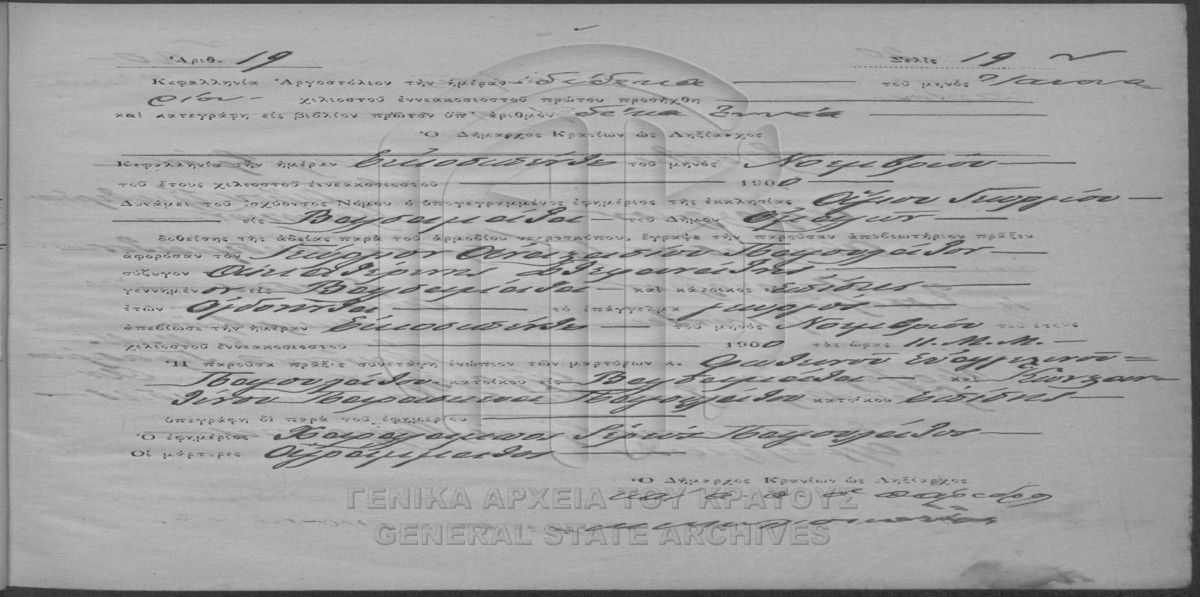 Ἀριθ. 19 Σελὶς 19
Κεφαλληνία Ἀργοστόλιον τὴν ἡμέραν δωδεκα τοῦ μηνὸς Ἰανουα
ρίου χιλιοστοῦ ἐννεακοσιοστοῦ πρώτου προσήχθη
καὶ κατεγράφη εἰς βιβλίον πρῶτον ὑπ' ἀριθμὸν δέκα ἐννέα
Ὁ Δήμαρχος Κρανίων ὡς Ληξίαρχος
Κεφαλληνία τὴν ἡμέραν Εἰκοσιπέντε τοῦ μηνὸς Νοεμβρίου
τοῦ ἔτους χιλιοστοῦ ἐννεακοσιοστοῦ 1900
Δυνάμει τοῦ ἰσχύοντος Νόμου ὁ ὑπογεγραμμένος ἐφημέριος τῆς ἐκκλησίας Ἁγίου Γεωργίου
εἰς Βαλσαμάτα τοῦ Δήμου
δοθείσης τῆς ἀδείας παρὰ τοῦ ἁρμοδίου νεκροσκόπου, ἔγραψε τὴν παροῦσαν ἀποβιωτήριον πρᾶξιν
ἀφορῶσαν τὸν Γεώργιον Ἀναστασίου
σύζυγον Αἰκατερίνης
γεννημένον εἰς Βαλσαμάτα καὶ κάτοικος ἐπίσης
ἐτῶν Ὀγδοήντα τὸ ἐπάγγελμα γεωργὸς
ἀπεβίωσε τὴν ἡμέραν Εἰκοσιπέντε τοῦ μηνὸς Νοεμβρίου τοῦ ἔτους
χιλιοστοῦ ἐννεακοσιοστοῦ 1900 τὰς ὥρας 11. Μ.Μ.
Ἡ παροῦσα πρᾶξις συνετάχθη ἐνώπιον τῶν μαρτύρων κ. Φωτεινοῦ Εὐαγγελινοῦ
κατοίκου εἰς Βαλσαμάτα καὶ Κωνσταν
τίνου κατοίκου ἐπίσης
ὑπεγράφη δὲ παρὰ τοῦ ἐφημερίου
Ὁ ἐφημέριος Χαράλαμπος Ἱερεὺς
Οἱ μάρτυρες Ἀγράμματοι
Ὁ Δήμαρχος Κρανίων ὡς Ληξίαρχος
ΓΕΝΙΚΑ ΑΡΧΕΙΑ ΤΟΥ ΚΡΑΤΟΥΣ
GENERAL STATE ARCHIVES